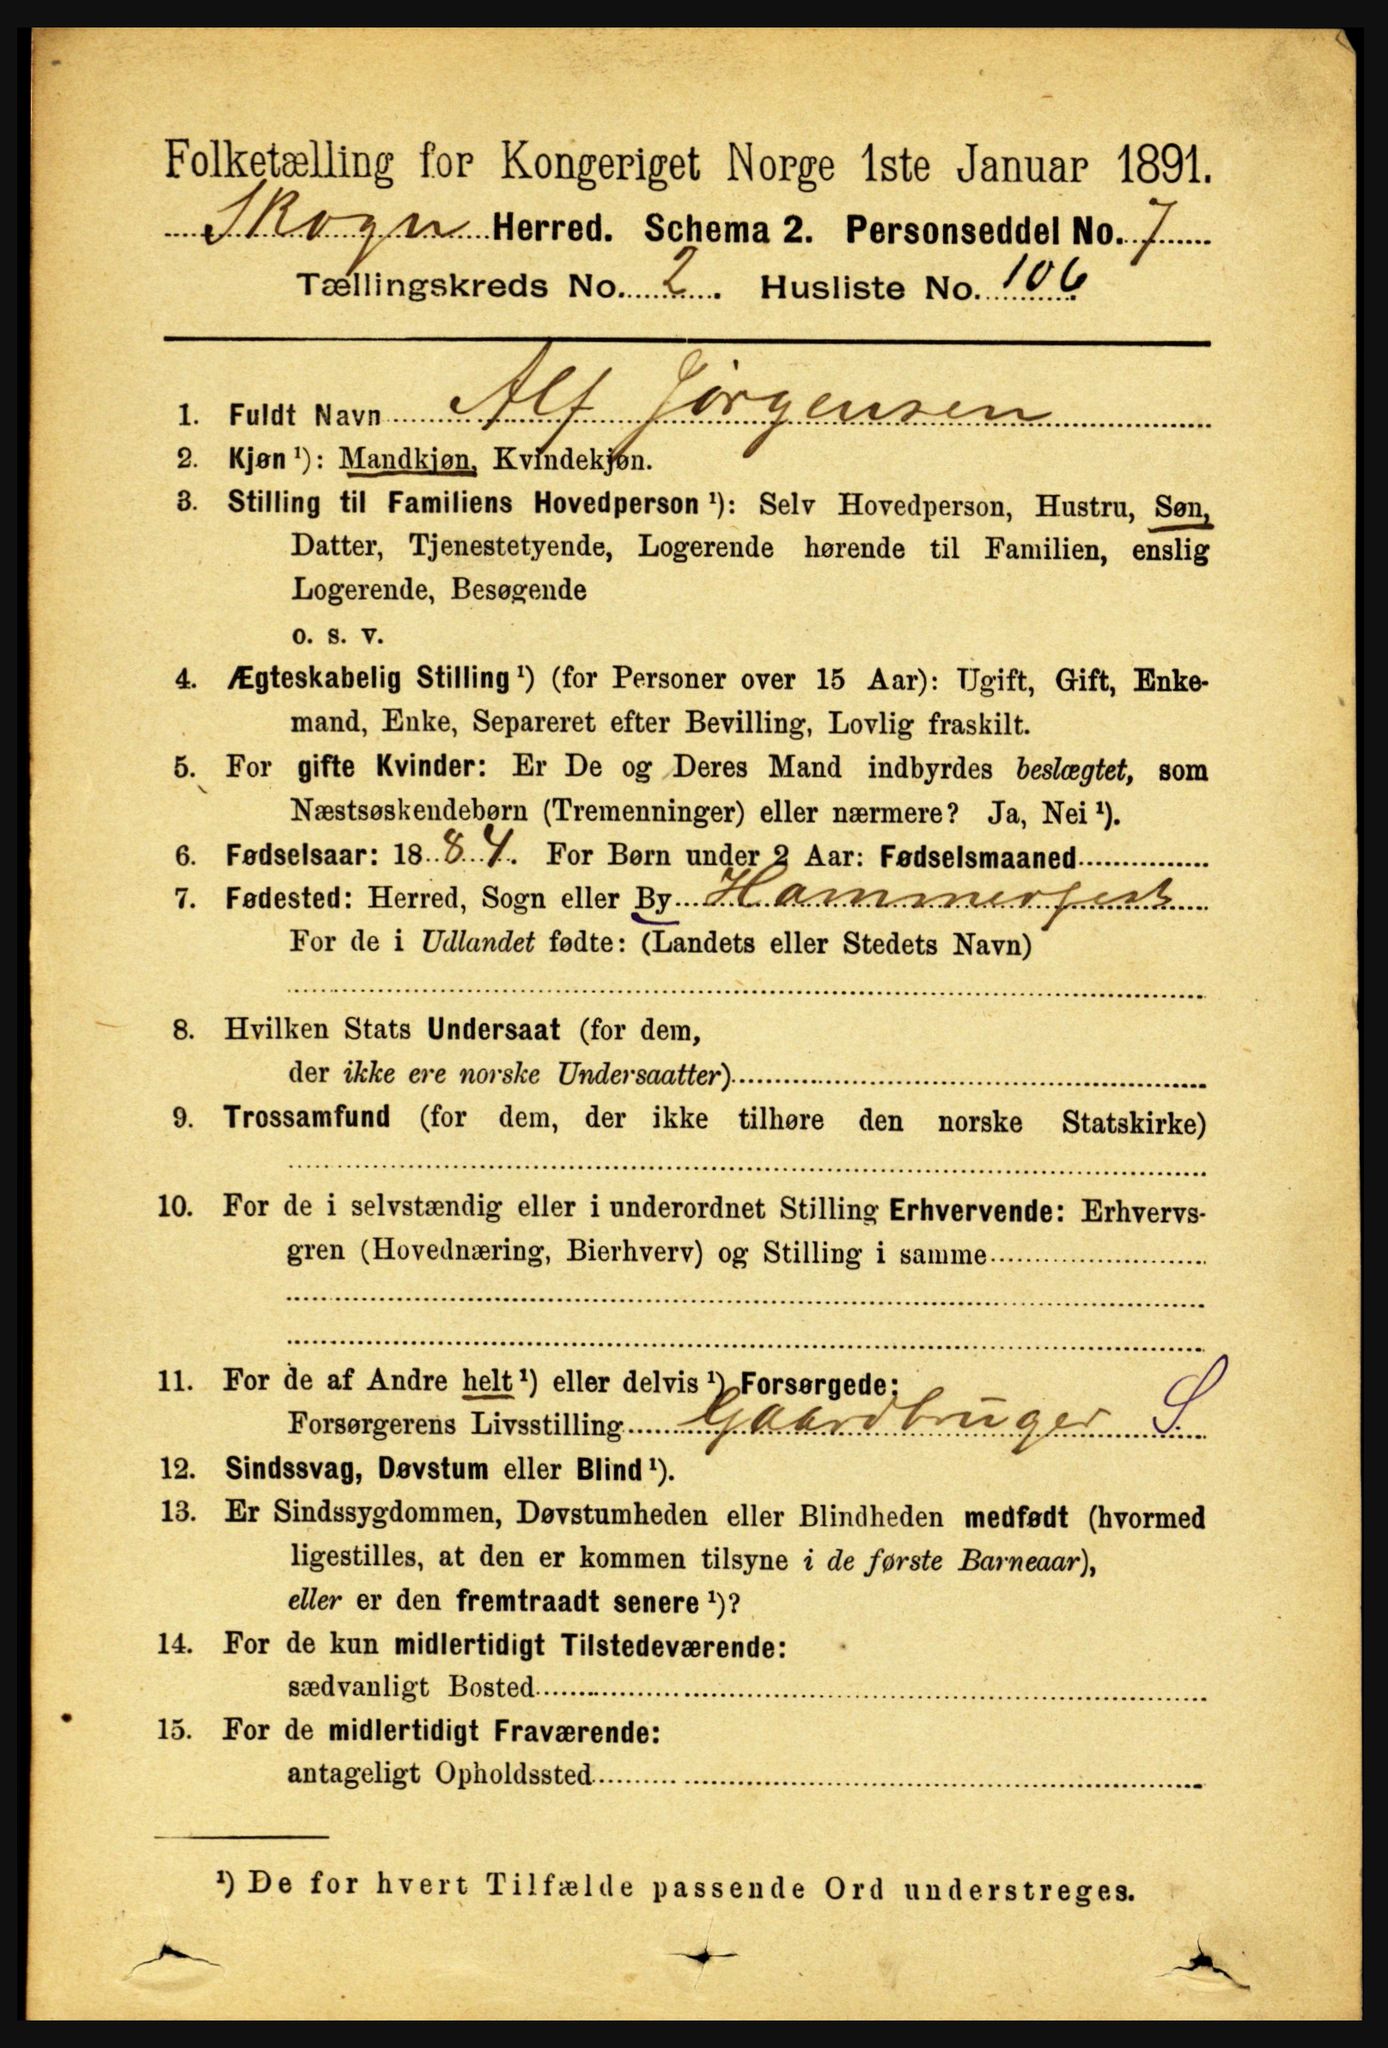 Folketælling for Kongeriget Norge 1ste Januar 1891.
Skogn Herred. Schema 2. Personseddel No. 7
Tællingskreds No. 2. Husliste No. 106
1. Fuldt Navn Alf Jørgensen
2. Kjøn ¹): Mandkjøn, Kvindekjøn.
3. Stilling til Familiens Hovedperson ¹): Selv Hovedperson, Hustru, Søn,
Datter, Tjenestetyende, Logerende hørende til Familien, enslig
Logerende, Besøgende
o. s. v.
4. Ægteskabelig Stilling ¹) (for Personer over 15 Aar): Ugift, Gift, Enke-
mand, Enke, Separeret efter Bevilling, Lovlig fraskilt.
5. For gifte Kvinder: Er De og Deres Mand indbyrdes beslægtet, som
Næstsøskendebørn (Tremenninger) eller nærmere? Ja, Nei ¹).
6. Fødselsaar: 1884. For Børn under 2 Aar: Fødselsmaaned
7. Fødested: Herred, Sogn eller By Hammerfest
For de i Udlandet fødte: (Landets eller Stedets Navn)
8. Hvilken Stats Undersaat (for dem,
der ikke ere norske Undersaatter)
9. Trossamfund (for dem, der ikke tilhøre den norske Statskirke)
10. For de i selvstændig eller i underordnet Stilling Erhvervende: Erhvervs-
gren (Hovednæring, Bierhverv) og Stilling i samme
11. For de af Andre helt ¹) eller delvis ¹) Forsørgede:
Forsørgerens Livsstilling Gaardbruger S.
12. Sindssvag, Døvstum eller Blind ¹).
13. Er Sindssygdommen, Døvstumheden eller Blindheden medfødt (hvormed
ligestilles, at den er kommen tilsyne i de første Barneaar),
eller er den fremtraadt senere ¹)?
14. For de kun midlertidigt Tilstedeværende:
sædvanligt Bosted
15. For de midlertidigt Fraværende:
antageligt Opholdssted
¹) De for hvert Tilfælde passende Ord understreges.